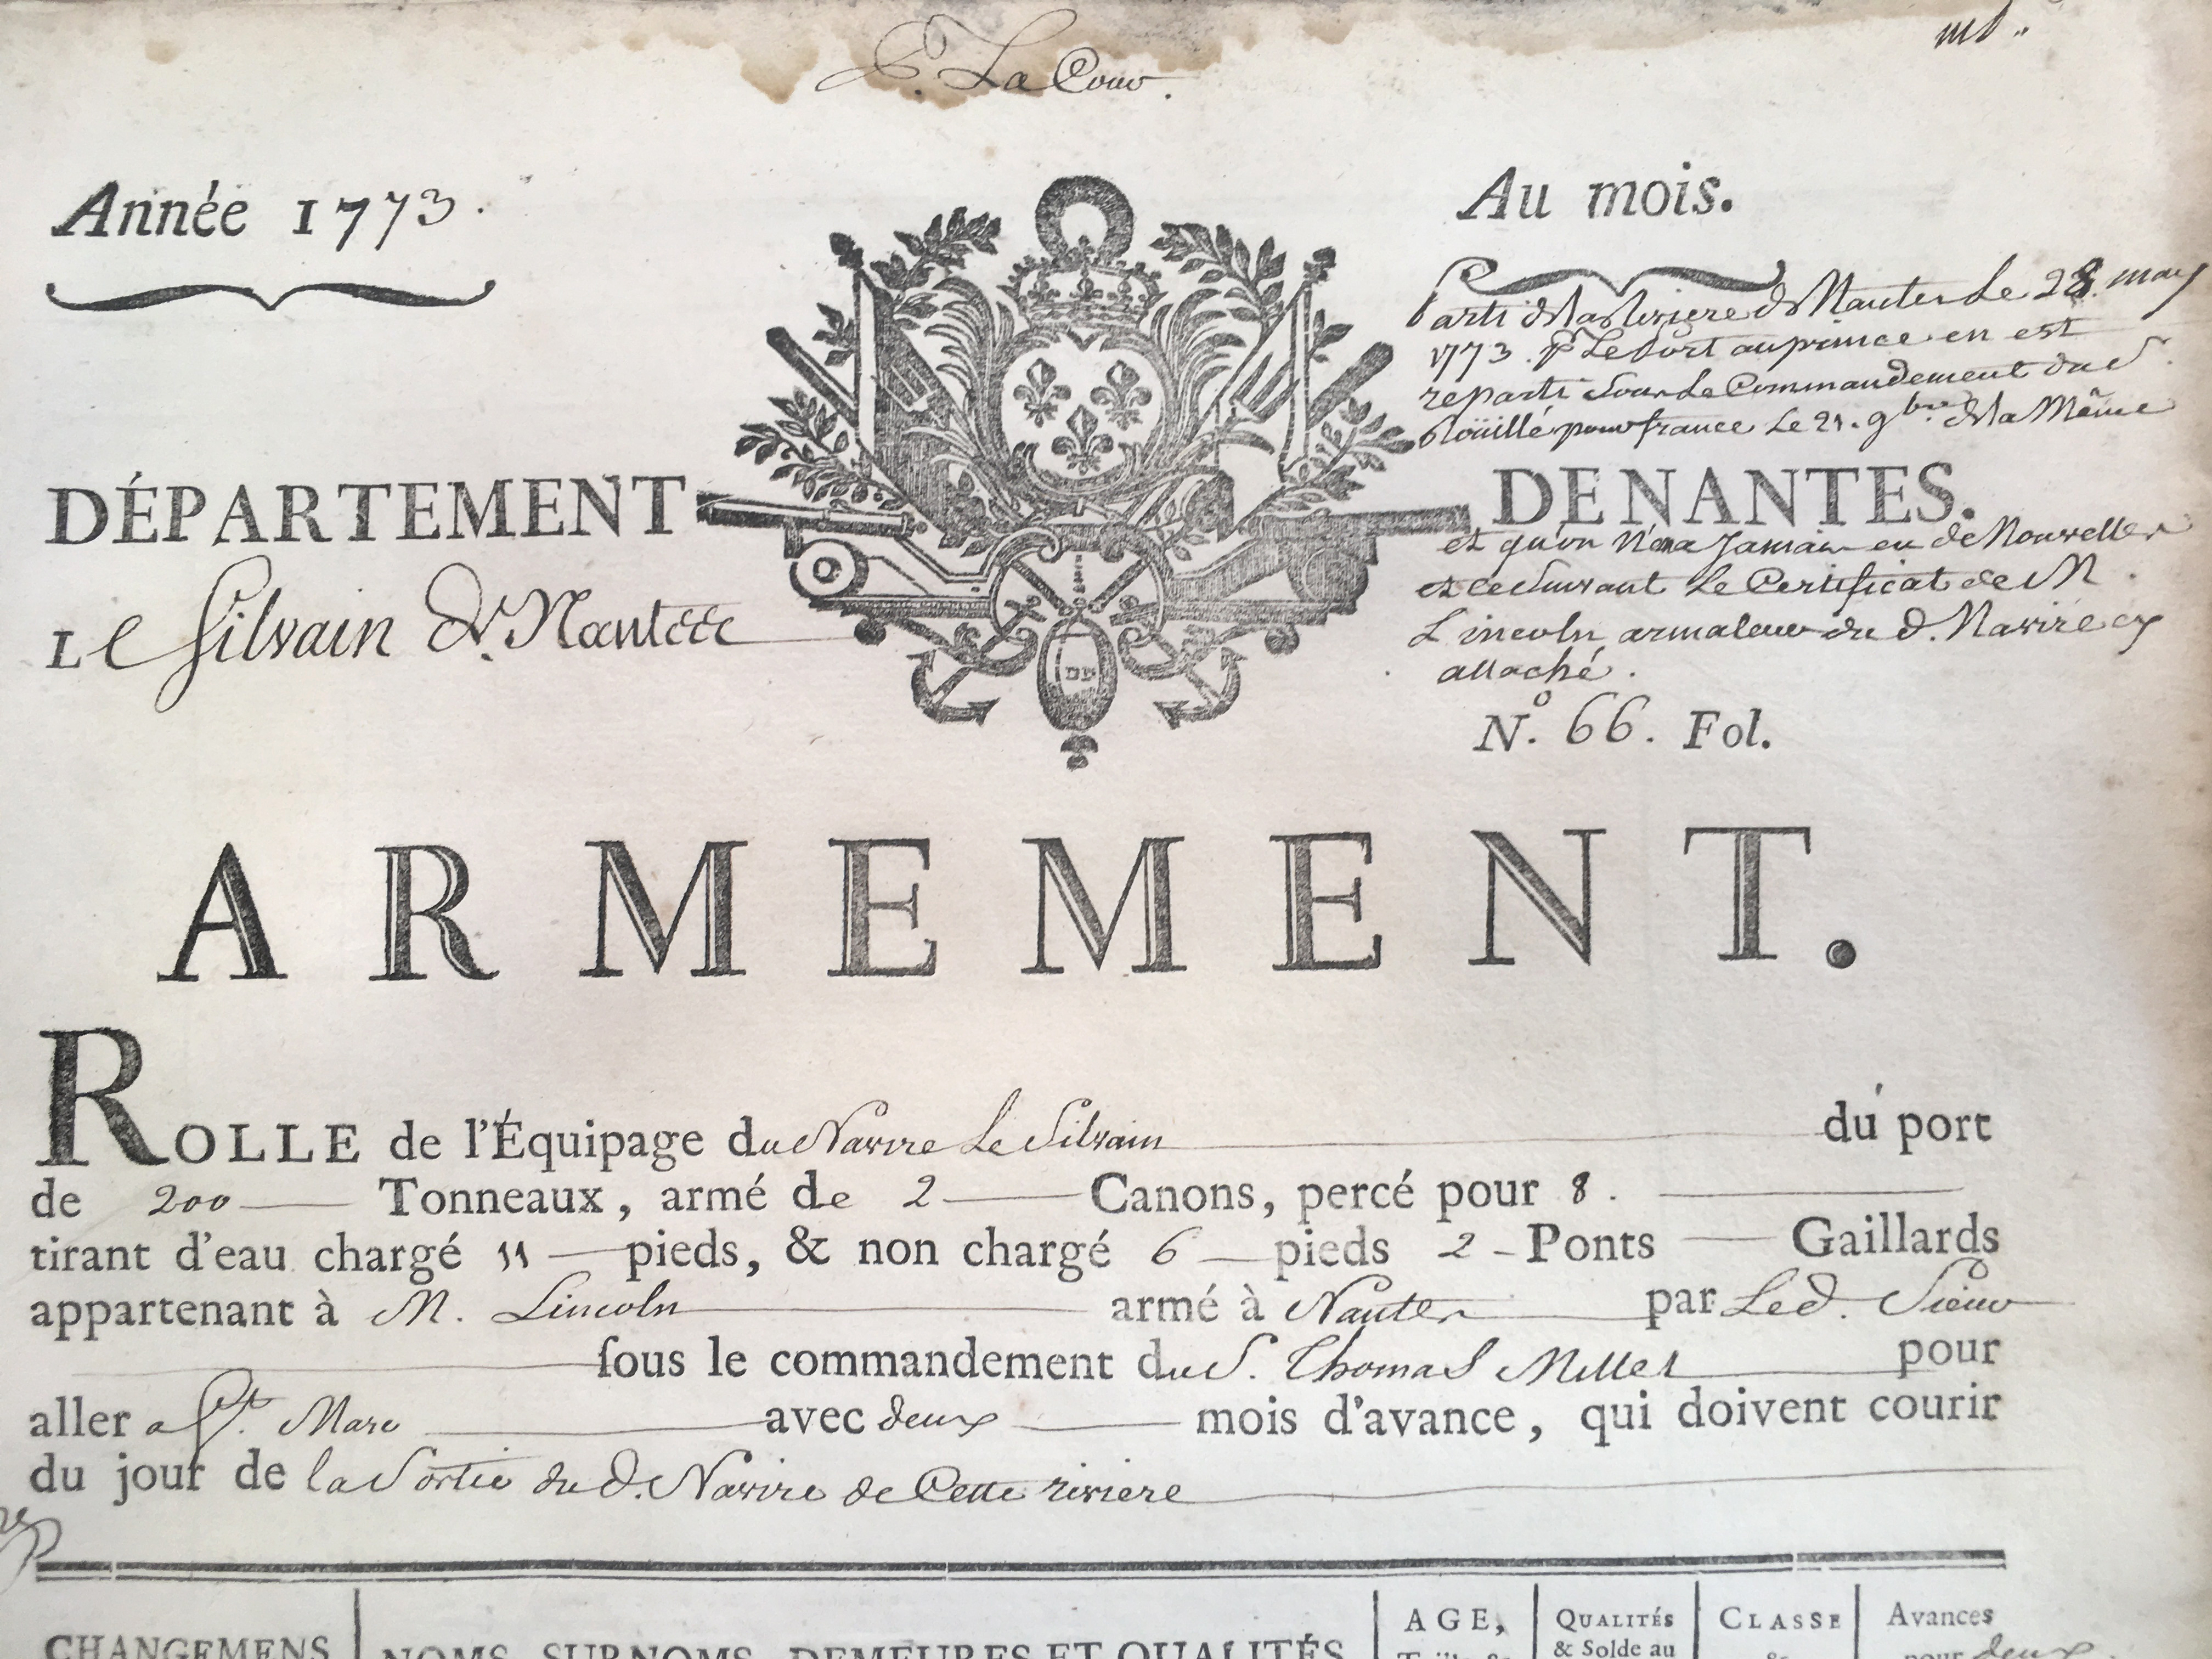 P. La Cour.
Année 1773.
Au mois.
Parti de la Riviere de Nantes Le 28. may
1773. pr Le Port au prince en est
reparti sous Le Commandement du S.
Roüillé pour france Le 21. 9bre de la Même
DÉPARTEMENT DE NANTES.
et qu'on n'en a Jamais eu de Nouvelles
et ce suivant Le Certificat de M.
Lincoln armateur du d. Navire cy
attaché.
Le Silvain De Nantes
No. 66. Fol.
ARMEMENT.
ROLLE de l'Équipage du Navire Le Silvain du port
de 200 Tonneaux, armé de 2 Canons, percé pour 8.
tirant d'eau chargé 11 pieds, & non chargé 6 pieds 2 Ponts Gaillards
appartenant à M. Lincoln armé à Nantes par Led. Sieur
sous le commandement du S. Thomas Millet pour
aller a St. Marc avec deux mois d'avance, qui doivent courir
du jour de la Sortie du d. Navire de Cette riviere
CHANGEMENS NOMS, SURNOMS, DEMEURES ET QUALITÉS AGE, QUALITÉS CLASSE Avances
& Solde au & pour deux